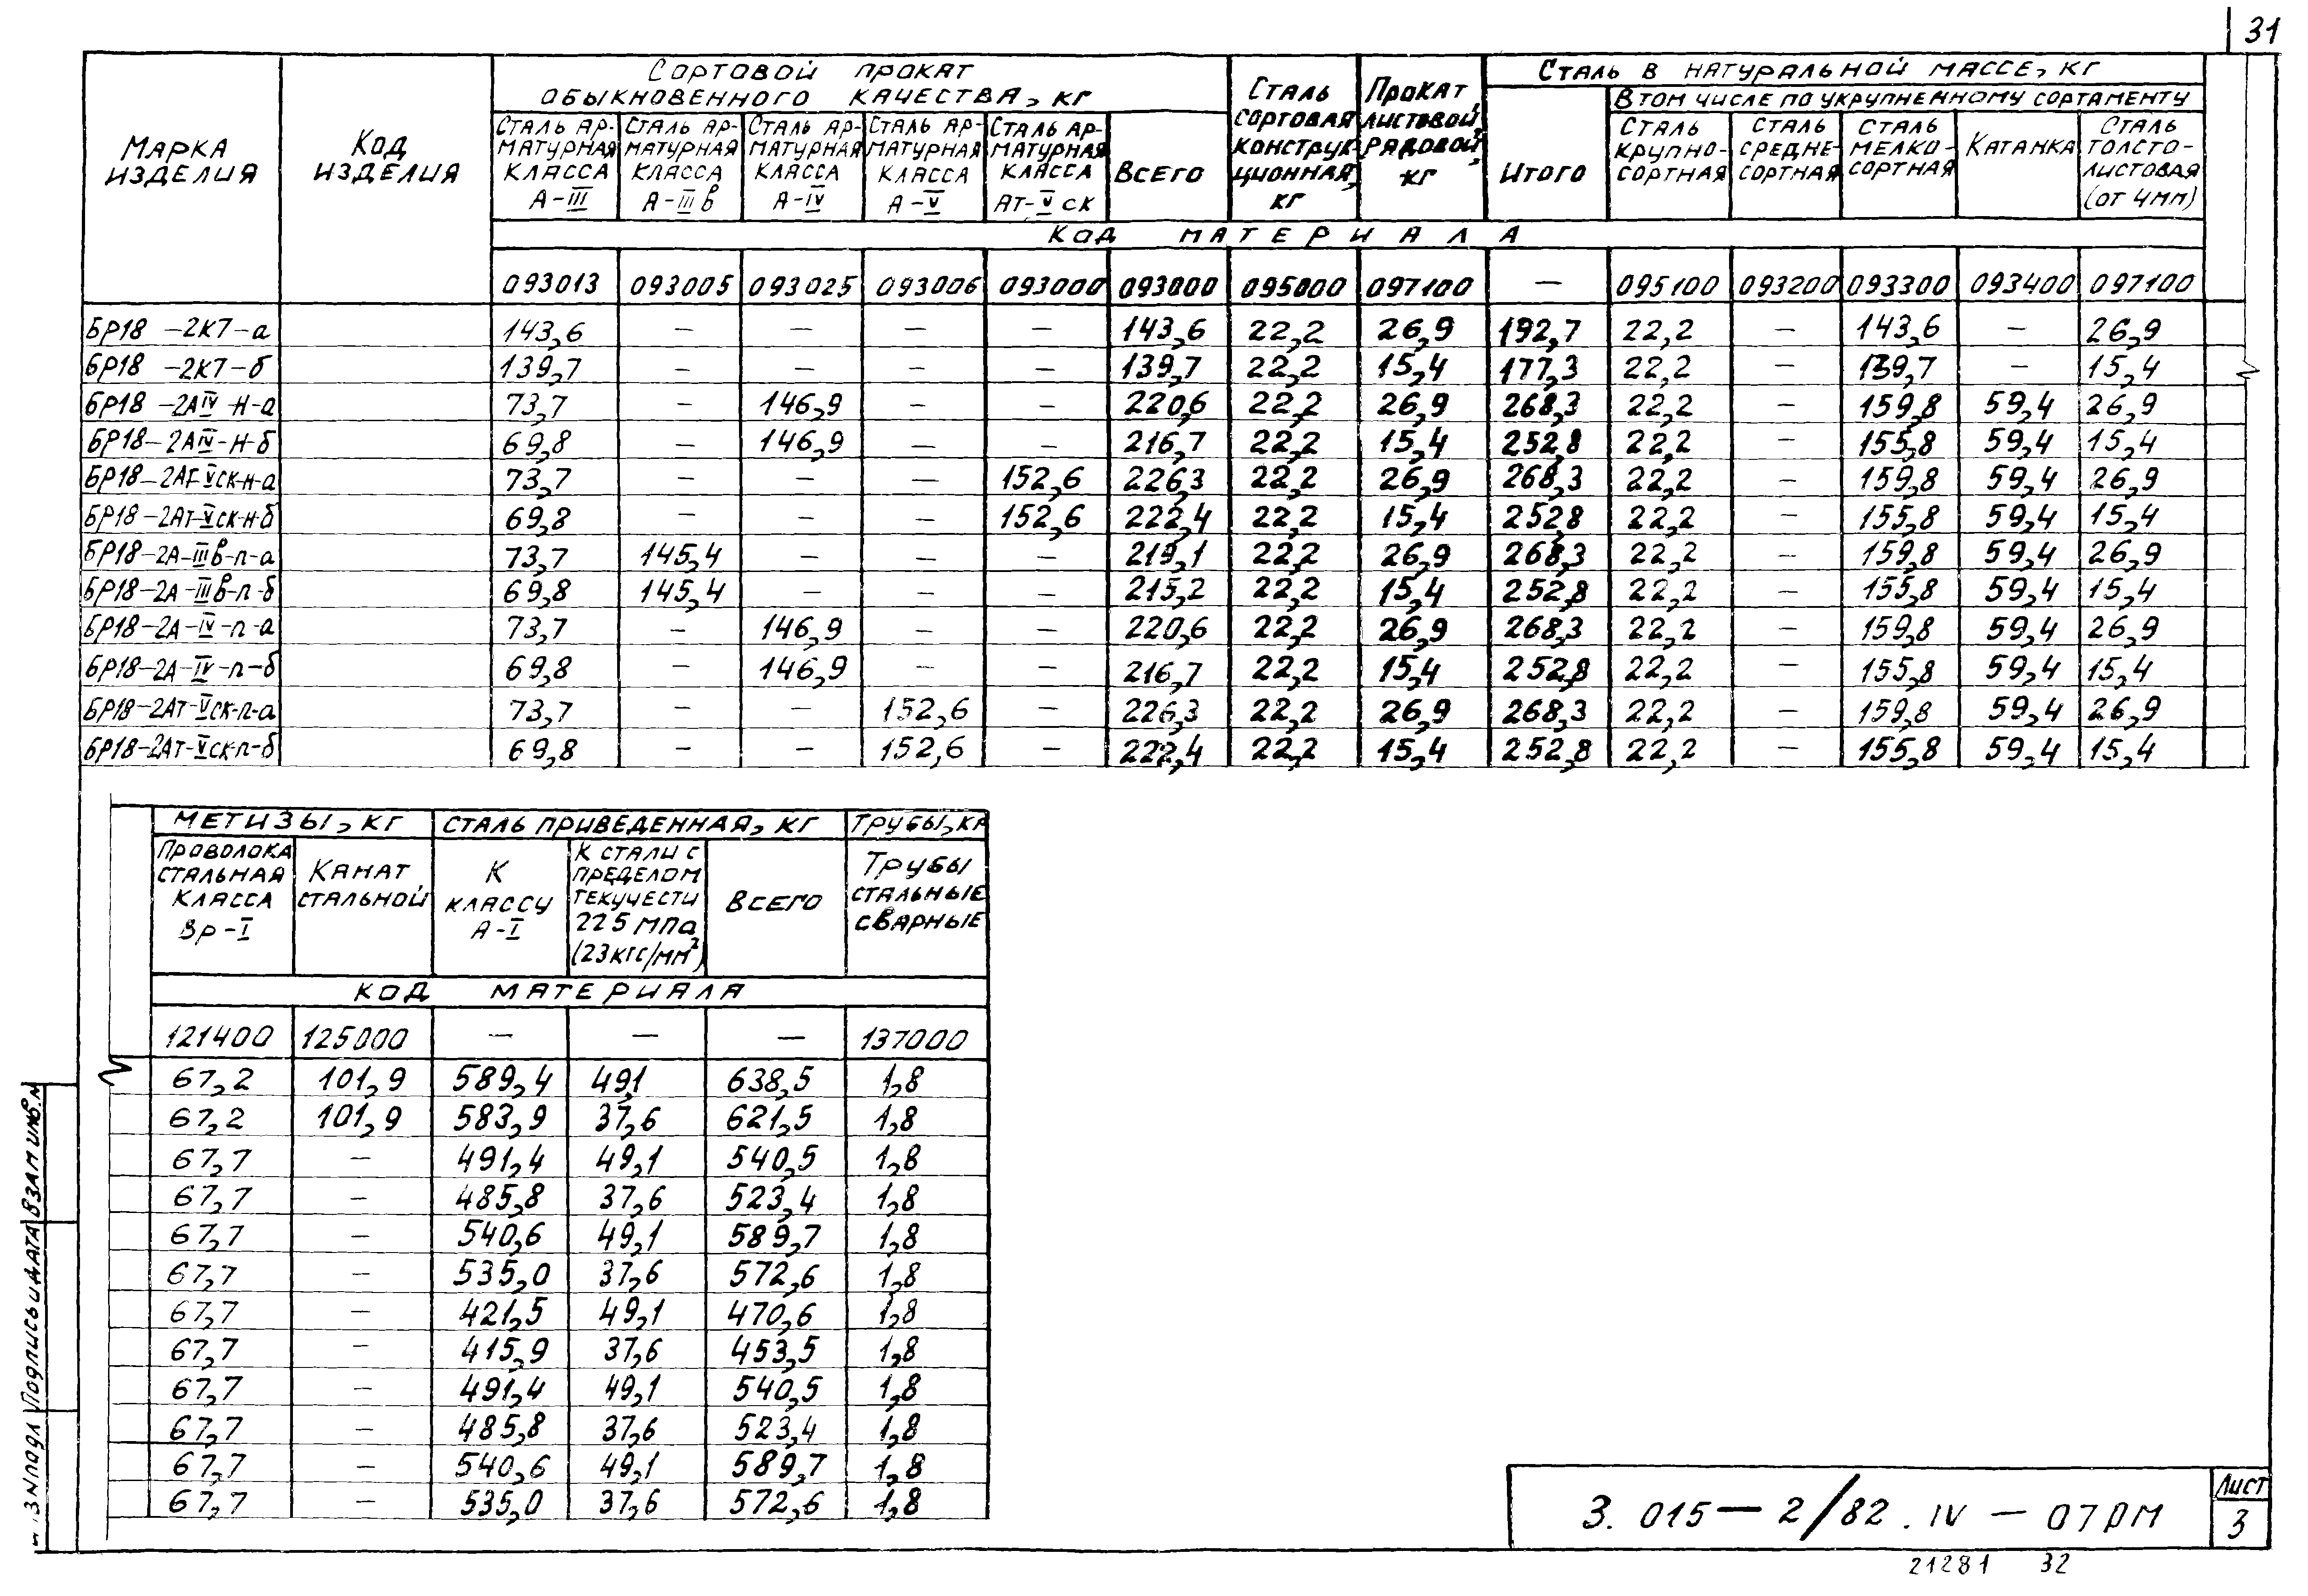 31
Сортовой прокат обыкновенного качества, кг
Сталь сортовая конструкционная, кг
Прокат листовой рядовой, кг
Сталь в натуральной массе, кг
В том числе по укрупненному сортаменту
Марка изделия
Код изделия
Сталь арматурная класса А-III
Сталь арматурная класса А-IIIв
Сталь арматурная класса А-IV
Сталь арматурная класса А-V
Сталь арматурная класса Ат-V ск
Всего
Итого
Сталь крупносортная
Сталь среднесортная
Сталь мелкосортная
Катанка
Сталь толстолистовая (от 4мм)
Код материала
093013 093005 093025 093006 093000 093000 095000 097100 — 095100 093200 093300 093400 097100
БР18 -2К7-а 143,6 — — — — 143,6 22,2 26,9 192,7 22,2 — 143,6 — 26,9
БР18 -2К7-б 139,7 — — — — 139,7 22,2 15,4 177,3 22,2 — 139,7 — 15,4
БР18 -2АIV-Н-а 73,7 — 146,9 — — 220,6 22,2 26,9 268,3 22,2 — 159,8 59,4 26,9
БР18-2АIV-Н-б 69,8 — 146,9 — — 216,7 22,2 15,4 252,8 22,2 — 155,8 59,4 15,4
БР18-2АТ-Vск-н-а 73,7 — — — 152,6 226,3 22,2 26,9 268,3 22,2 — 159,8 59,4 26,9
БР18-2АТ-Vск-н-б 69,8 — — — 152,6 222,4 22,2 15,4 252,8 22,2 — 155,8 59,4 15,4
БР18-2А-IIIв-п-а 73,7 145,4 — — — 219,1 22,2 26,9 268,3 22,2 — 159,8 59,4 26,9
БР18-2А-IIIв-п-б 69,8 145,4 — — — 215,2 22,2 15,4 252,8 22,2 — 155,8 59,4 15,4
БР18-2А-IV-п-а 73,7 — 146,9 — — 220,6 22,2 26,9 268,3 22,2 — 159,8 59,4 26,9
БР18-2А-IV-п-б 69,8 — 146,9 — — 216,7 22,2 15,4 252,8 22,2 — 155,8 59,4 15,4
БР18-2АТ-Vск-п-а 73,7 — — 152,6 — 226,3 22,2 26,9 268,3 22,2 — 159,8 59,4 26,9
БР18-2АТ-Vск-п-б 69,8 — — 152,6 — 222,4 22,2 15,4 252,8 22,2 — 155,8 59,4 15,4
Метизы, кг Сталь приведенная, кг Трубы, кг
Проволока стальная класса Вр-I
Канат стальной
К классу А-I
К стали с пределом текучести 225 МПа (23 кгс/мм²)
Всего
Трубы стальные сварные
Код материала
121400 125000 — — — 137000
67,2 101,9 589,4 49,1 638,5 1,8
67,2 101,9 583,9 37,6 621,5 1,8
67,7 — 491,4 49,1 540,5 1,8
67,7 — 485,8 37,6 523,4 1,8
67,7 — 540,6 49,1 589,7 1,8
67,7 — 535,0 37,6 572,6 1,8
67,7 — 421,5 49,1 470,6 1,8
67,7 — 415,9 37,6 453,5 1,8
67,7 — 491,4 49,1 540,5 1,8
67,7 — 485,8 37,6 523,4 1,8
67,7 — 540,6 49,1 589,7 1,8
67,7 — 535,0 37,6 572,6 1,8
Взам инв. №
Подпись и дата
№ подл
3. 015 — 2/82. IV — 07 РМ
Лист
3
21281 32